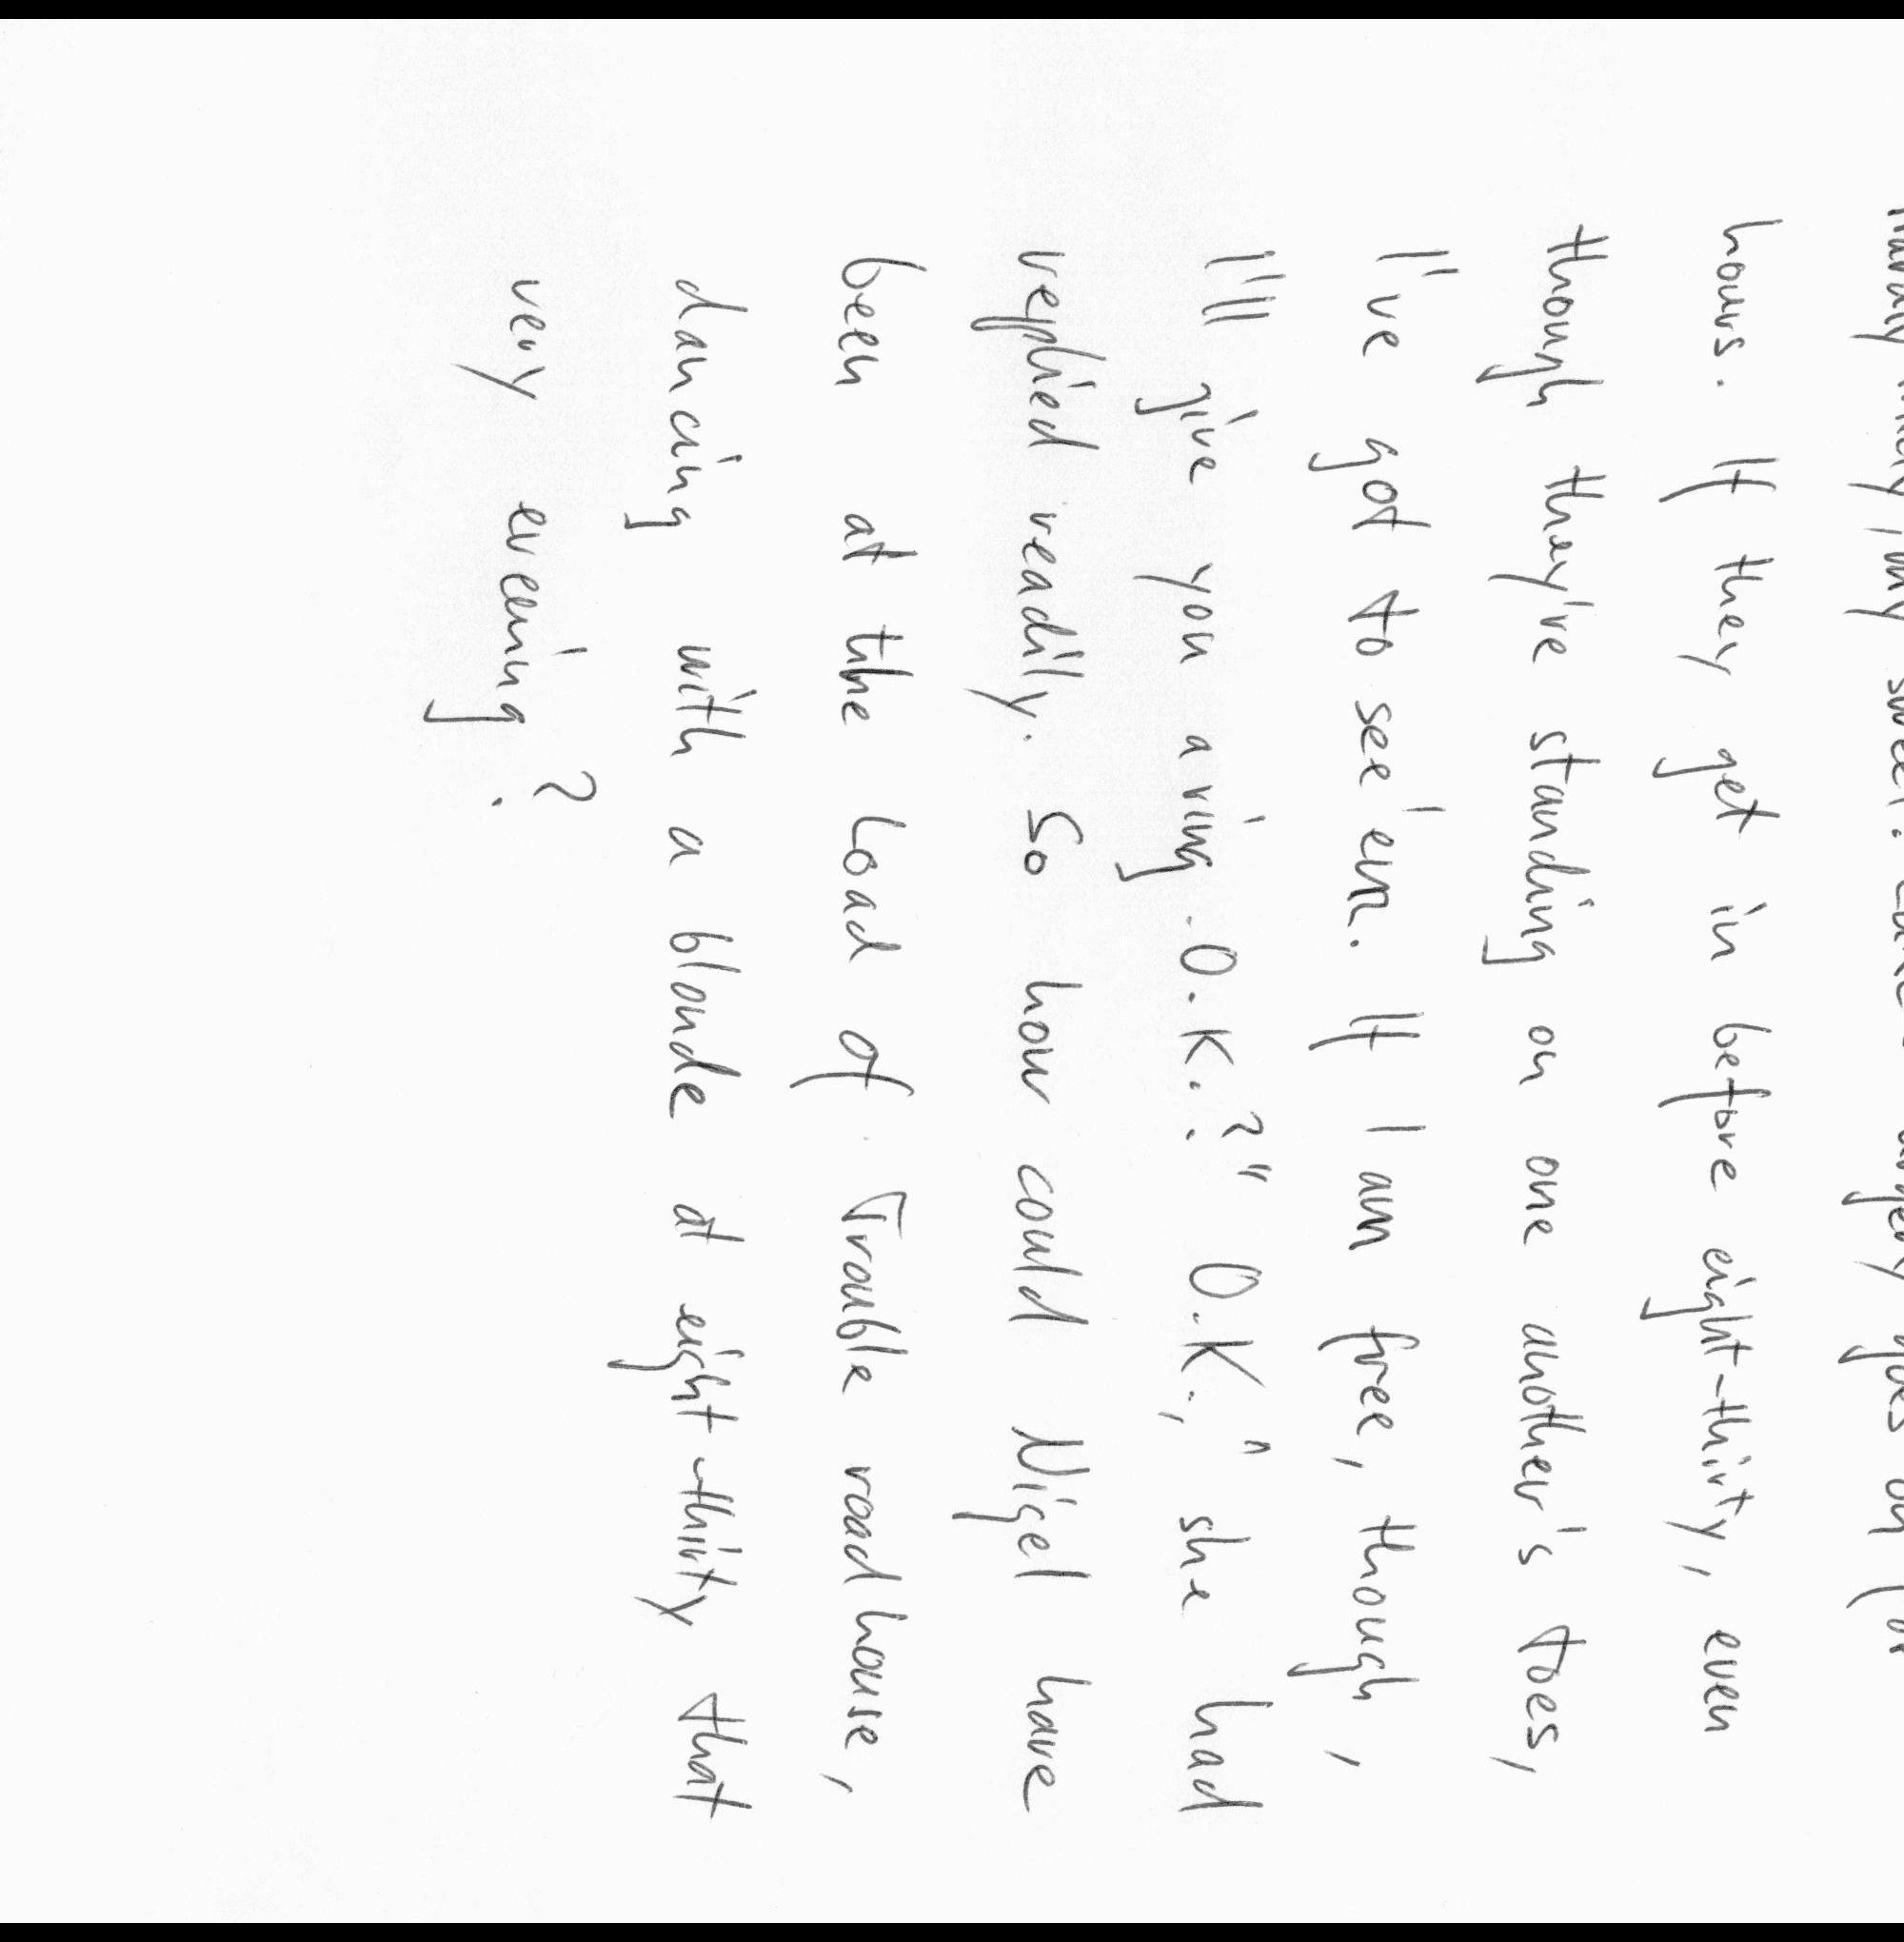 my sweet. goes on
hours. If they get in before eight-thirty, even
though they're standing on one another's toes,
I've got to see 'em. If I am free, though,
I'll give you a ring. O.K.?" O.K.," she had
replied readily. So how could Nigel have
been at the Load of Trouble roadhouse,
dancing with a blonde at eight-thirty that
very evening?